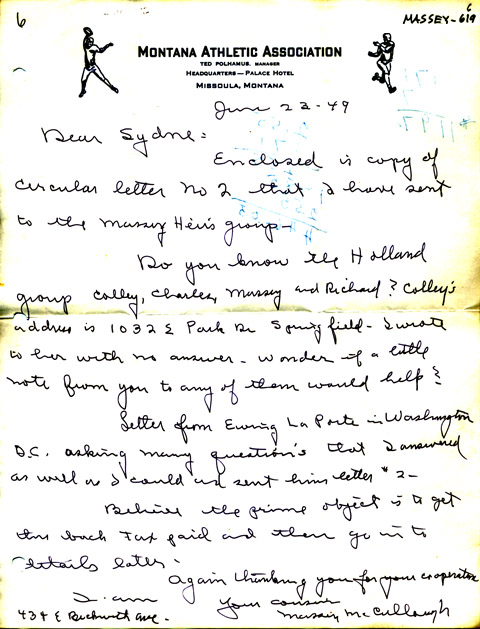 6
6
MASSEY-619
MONTANA ATHLETIC ASSOCIATION
TED POLHAMUS, MANAGER
HEADQUARTERS—PALACE HOTEL
MISSOULA, MONTANA
June 23-49
Dear Sydne:
Enclosed is copy of
circular letter No 2 that I have sent
to the Massey Heirs group-
Do you know the Holland
group Colley, Charles, Massey and Richard? Colley's
address is 1032 E Park Springfield- I wrote
to her with no answer- wonder if a little
note from you to any of them would help?
Letter from Ewing La Porte in Washington
D.C. asking many question's that I answered
as well as I could and sent him letter # 2-
Believe the prime object is to get
this back Tax paid and then go in to
details later.
Again thanking you for your cooperation
I am
Your cousin
Massey McCullough
434 E Beckwith Ave.